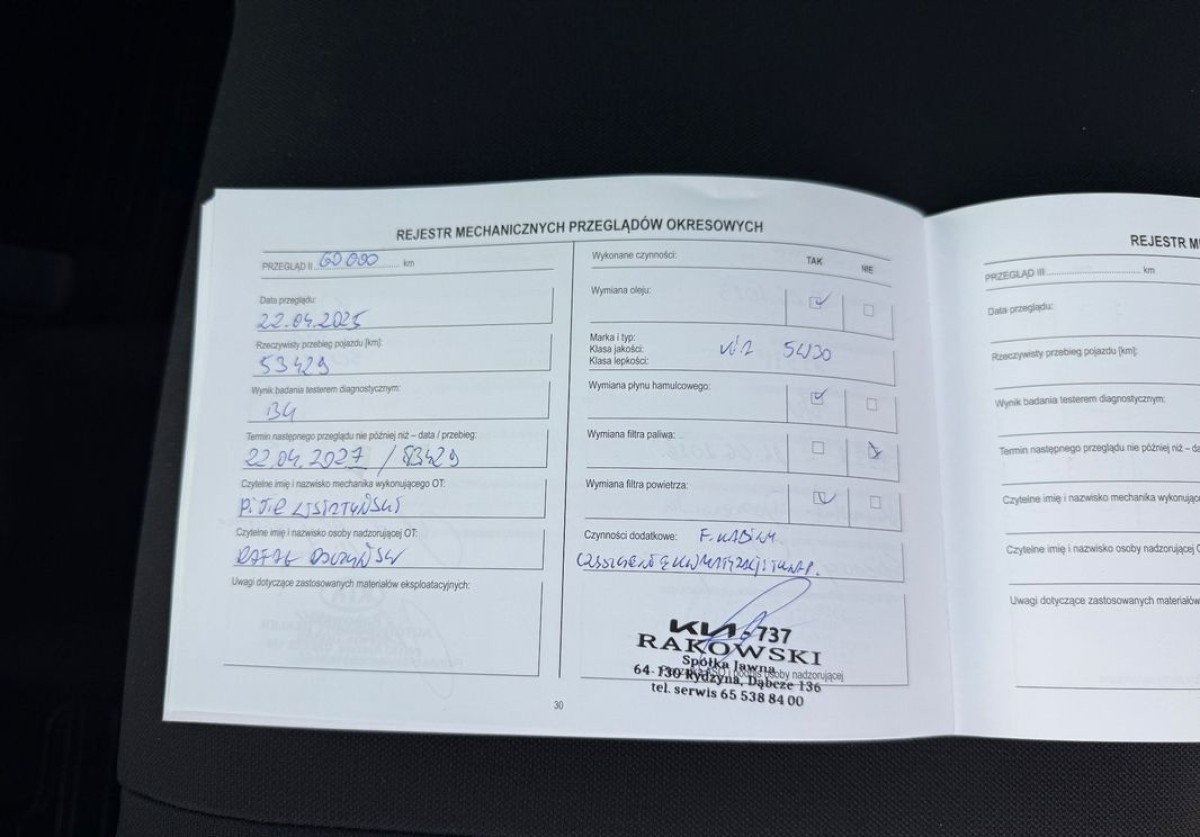 REJESTR MECHANICZNYCH PRZEGLĄDÓW OKRESOWYCH
PRZEGLĄD II 60 000 km
Data przeglądu:
22.04.2025
Rzeczywisty przebieg pojazdu [km]:
53429
Wynik badania testerem diagnostycznym:
Termin następnego przeglądu nie później niż – data / przebieg:
22.04.2027 / 83429
Czytelne imię i nazwisko mechanika wykonującego OT:
Czytelne imię i nazwisko osoby nadzorującej OT:
RAFAŁ
Uwagi dotyczące zastosowanych materiałów eksploatacyjnych:
Wykonane czynności: TAK NIE
Wymiana oleju:
Marka i typ:
Klasa jakości:
Klasa lepkości:
5W30
Wymiana płynu hamulcowego:
Wymiana filtra paliwa:
Wymiana filtra powietrza:
Czynności dodatkowe: F. KABINY
KIA-737
RAKOWSKI
Spółka Jawna
osoby nadzorującej
64-130 Rydzyna, Dąbcze 136
tel. serwis 65 538 84 00
30
REJESTR M
PRZEGLĄD III km
Data przeglądu:
Rzeczywisty przebieg pojazdu [km]:
Wynik badania testerem diagnostycznym:
Termin następnego przeglądu nie później niż – da
Czytelne imię i nazwisko mechanika wykonując
Czytelne imię i nazwisko osoby nadzorującej
Uwagi dotyczące zastosowanych materiałów